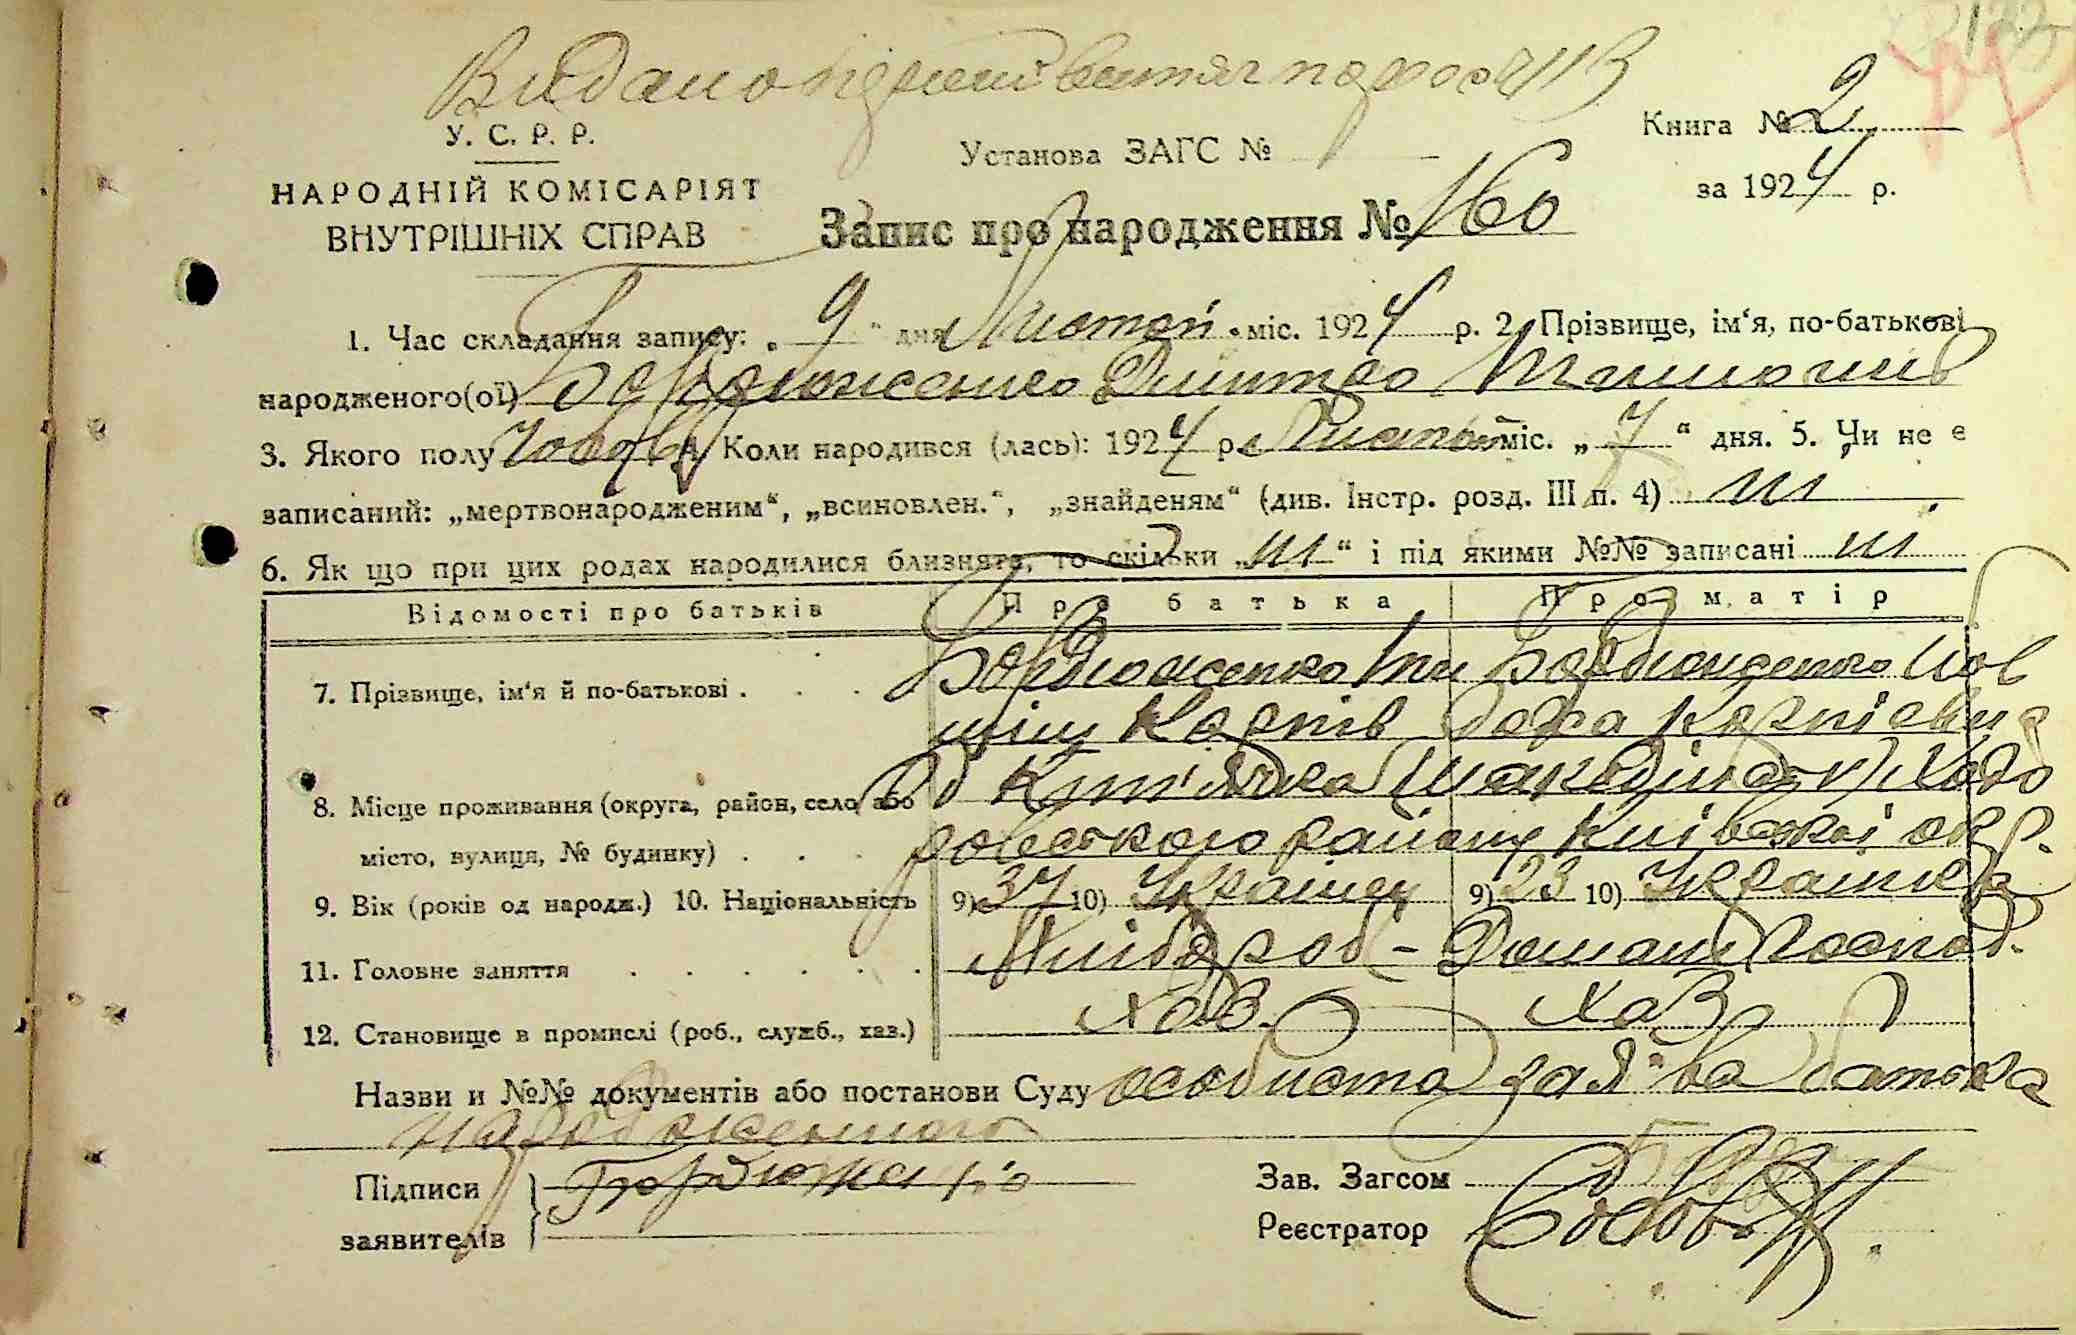 Видано
У. С. Р. Р.
НАРОДНІЙ КОМІСАРІЯТ
ВНУТРІШНІХ СПРАВ
Установа ЗАГС №
Книга № 2
за 1924 р.
Запис про народження № 160
1. Час складання запису: „ 9 " дня Листоп. міс. 1924 р. 2. Прізвище, ім'я, по-батькові
народженого(ої) Бордюженко Дмитро Тимошів
3. Якого полу 4. Коли народився (лась): 1924 р. Листоп міс. „ 7 " дня. 5. Чи не є
записаний: „мертвонародженим", „всиновлен.", „знайденям" (див. Інстр. розд. III п. 4) ні
6. Як що при цих родах народилися близнята, то скільки „ ні " і під якими №№ записані ні
Відомості про батьків Про батька Про матір
7. Прізвище, ім'я й по-батькові . . . Бордюженко Ти Бордюженко
Карпів Карпівна
8. Місце проживання (округа, район, село або
місто, вулиця, № будинку) . . . району Київської окр.
9. Вік (років од народж.) 10. Національність 9) 37 10) Українец 9) 23 10) Українка
11. Головне заняття . . . . . . Хлібороб - Домашн господ.
12. Становище в промислі (роб., служб., хаз.) хаз. хаз
Назви и №№ документів або постанови Суду особиста заява батька
народженного
Підписи Бордюженко Зав. Загсом
заявителів Реєстратор